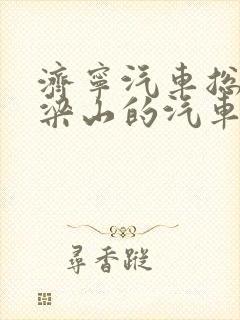 济宁汽车总
梁山的汽车
寻香踪